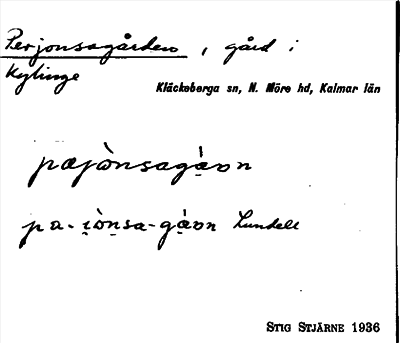 Perjonsagården, gård i
Kylinge
Kläckeberga sn, N. Möre hd, Kalmar län
pæjònsagạ̀vn
pa-ị̀ònsa-gạ̀vn Lundell
STIG STJÄRNE 1936